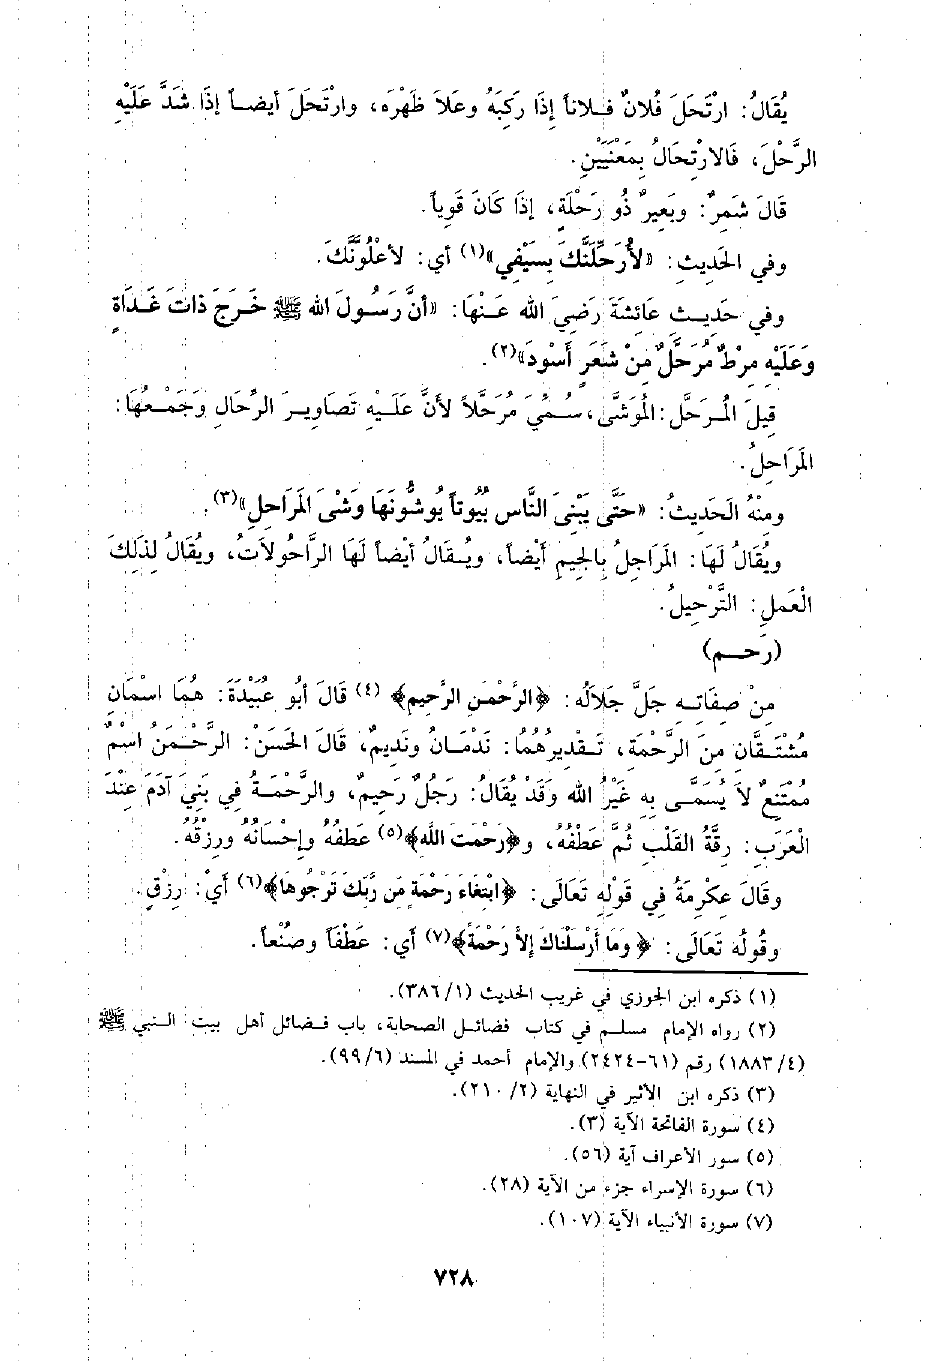 يُقَالُ: ارْتَحَلَ فُلانٌ فلاناً إِذَا رَكِبَهُ وعَلاَ ظَهْرَه، وارْتَحَلَ أيضاً إذَا شَدَّ عَلَيْهِ
الرَّحْلَ، فَالارْتِحَالُ بِمَعْنَيَيْنِ.
قَالَ شَمِرٌ: وبَعِيرٌ ذُو رَحْلَةٍ، إذَا كَانَ قَوِياً.
وفي الحَدِيثِ: «لأُرَحِّلَنَّكَ بِسَيْفِي»(١) أي: لأعْلُوَنَّكَ.
وفي حَدِيثِ عَائِشَةَ رَضِيَ الله عَنْهَا: «أنَّ رَسُولَ الله ﷺ خَرَجَ ذاتَ غَدَاةٍ
وَعَلَيْهِ مِرْطٌ مُرَحَّلٌ مِنْ شَعَرٍ أَسْودَ»(٢).
قِيلَ المُرَحَّل: المُوَشَّى، سُمِّيَ مُرَحَّلاً لأنَّ عَلَيْهِ تَصَاوِيرَ الرِّحَال وَجَمْعُهَا:
المَرَاحِلُ.
ومِنْهُ الحَدِيثُ: «حَتَّى يَبْنِىَ النَّاس بُيُوتاً يُوشُّونَهَا وَشْىَ المَرَاحِلِ»(٣).
ويُقَالُ لَهَا: المَرَاجِلُ بِالجِيمِ أَيْضاً، ويُقَالُ أيْضاً لَهَا الرَّاحُولاَتُ، ويُقَالُ لِذلِكَ
الْعَمَلِ: التَّرْحِيلُ.
(رَحم)
مِنْ صِفَاتِهِ جَلَّ جَلاَلُه: ﴿الرَّحْمَنِ الرَّحِيمِ﴾ (٤) قَالَ أَبُو عُبَيْدَةَ: هُمَا اسْمَانِ
مُشْتَقَّانِ مِنَ الرَّحْمَةِ، تَقْدِيرُهُمُا: نَدْمَانُ ونَدِيمٌ، قَالَ الحَسَنُ: الرَّحْمَنُ اسْمٌ
مُمْتَنِعٌ لاَ يُسَمَّى بِهِ غَيْرُ الله وَقَدْ يُقَالُ: رَجُلٌ رَحِيمٌ، والرَّحْمَةُ فِي بَنِيَ آدَمَ عِنْدَ
الْعَرَبِ: رِقَّةُ القَلْبِ ثُمَّ عَطْفُهُ، و﴿رَحْمَتَ اللَّهِ﴾(٥) عَطفُهُ وإحْسَانُهُ ورِزْقُهُ.
وقَالَ عِكْرِمَةُ فِي قَوْلِهِ تَعَالَى: ﴿ابْتِغَاءَ رَحْمَةٍ مِّن رَّبِّكَ تَرْجُوهَا﴾(٦) أَيْ: رِزْقٍ.
وقُولُه تَعَالَى: ﴿وَمَا أَرْسَلْنَاكَ إِلاَّ رَحْمَةً﴾(٧) أَي: عَطْفَاً وصُنْعاً.
(١) ذكره ابن الجوزي في غريب الحديث (٣٨٦/١).
(٢) رواه الإمام مسلم في كتاب فضائل الصحابة، باب فضائل أهل بيت النبي ﷺ
(١٨٨٣/٤) رقم (٦١-٢٤٢٤) والإمام أحمد في المسند (٩٩/٦).
(٣) ذكره ابن الأثير في النهاية (٢١٠/٢).
(٤) سورة الفاتحة الآية (٣).
(٥) سور الأعراف آية (٥٦).
(٦) سورة الإسراء جزء من الآية (٢٨).
(٧) سورة الأنبياء الآية (١٠٧).
٧٢٨